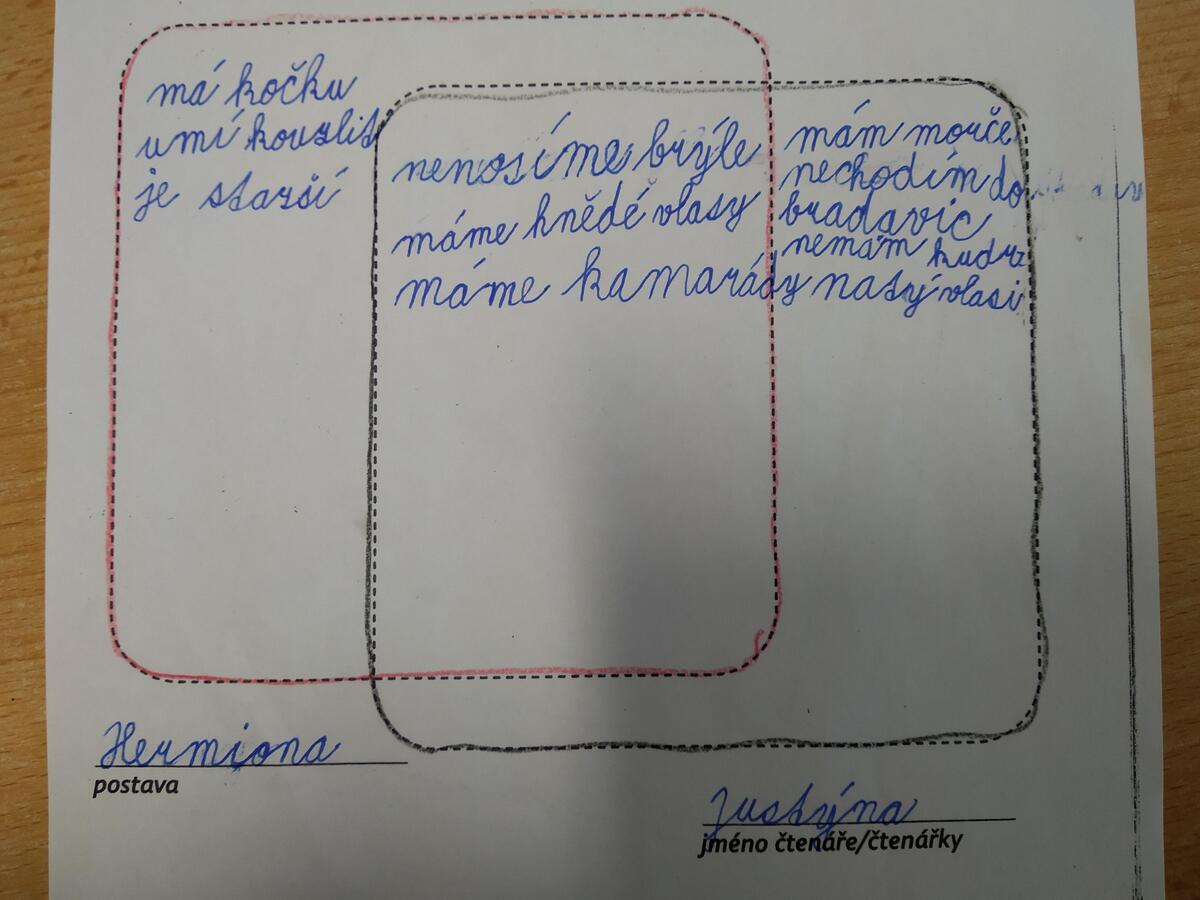 má kočku
umí kouzlit
je starší
nenosíme brýle
máme hnědé vlasy
máme kamarády
mám morče
nechodím do
bradavic
nemám kudr
natý vlasi
Hermiona
postava
Justýna
jméno čtenáře/čtenářky